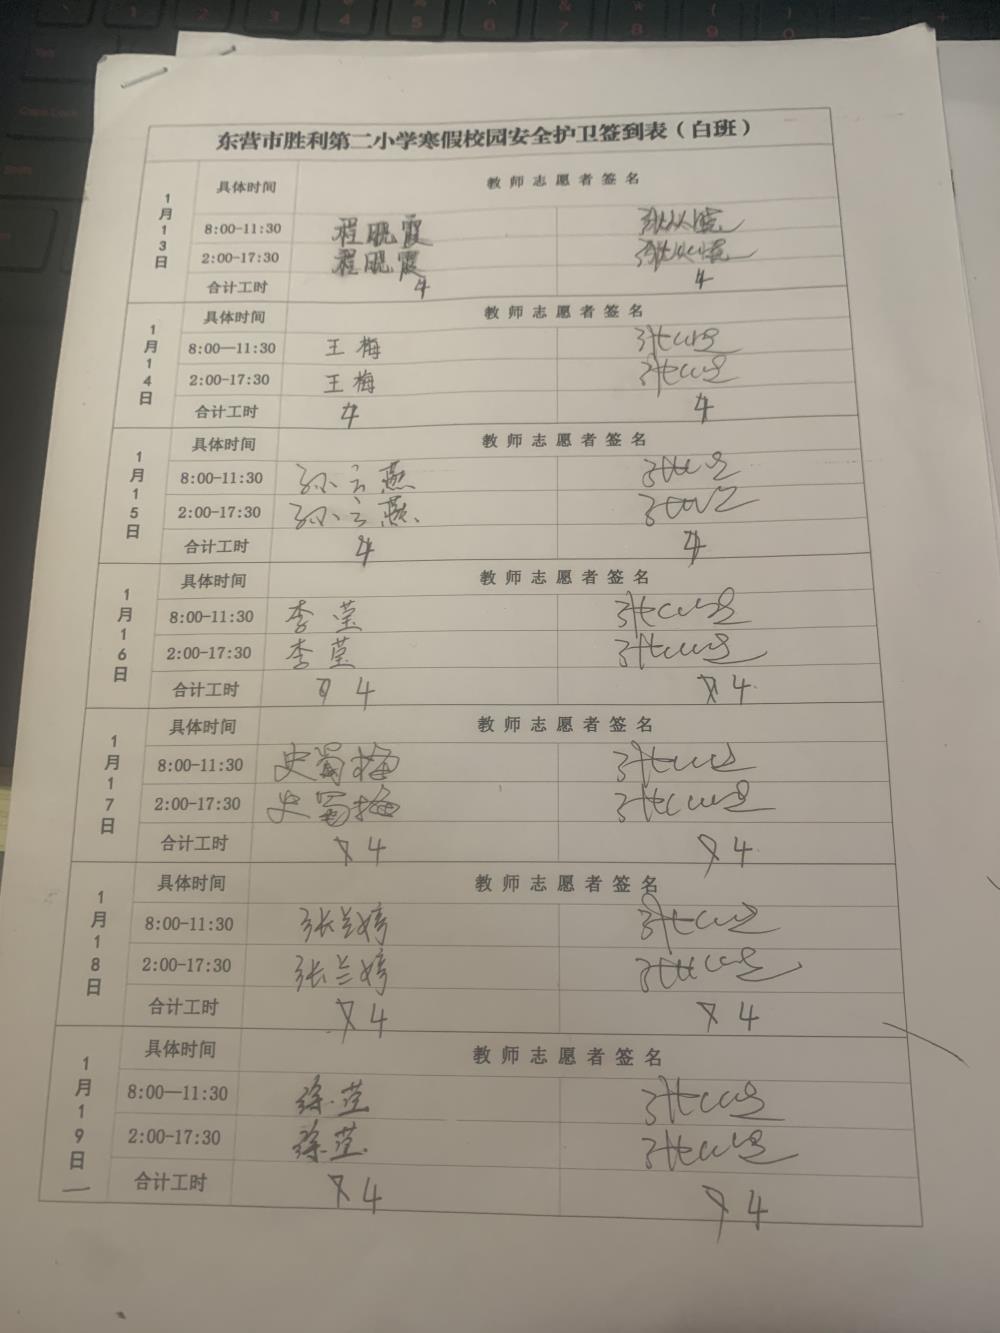 东营市胜利第二小学寒假校园安全护卫签到表（白班）
1月13日
具体时间 教师志愿者签名
8:00-11:30 程晓霞
2:00-17:30 程晓霞
合计工时 4 4
1月14日
具体时间 教师志愿者签名
8:00—11:30 王梅
2:00-17:30 王梅
合计工时 4 4
1月15日
具体时间 教师志愿者签名
8:00-11:30 孙云燕
2:00-17:30 孙云燕
合计工时 4 4
1月16日
具体时间 教师志愿者签名
8:00-11:30 李莹
2:00-17:30 李莹
合计工时 4 4
1月17日
具体时间 教师志愿者签名
8:00-11:30 史蜀梅
2:00-17:30 史蜀梅
合计工时 4 4
1月18日
具体时间 教师志愿者签名
8:00-11:30 张兰婷
2:00-17:30 张兰婷
合计工时 4 4
1月19日
具体时间 教师志愿者签名
8:00—11:30 徐莹
2:00-17:30 徐莹
合计工时 4 4